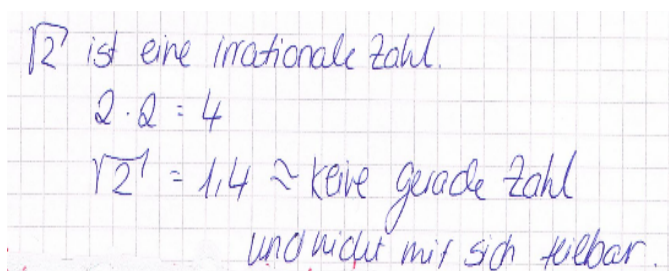 √2 ist eine irrationale Zahl.
2·2 = 4
√2 = 1,4 ≈ keine gerade Zahl
und nicht mit sich teilbar.